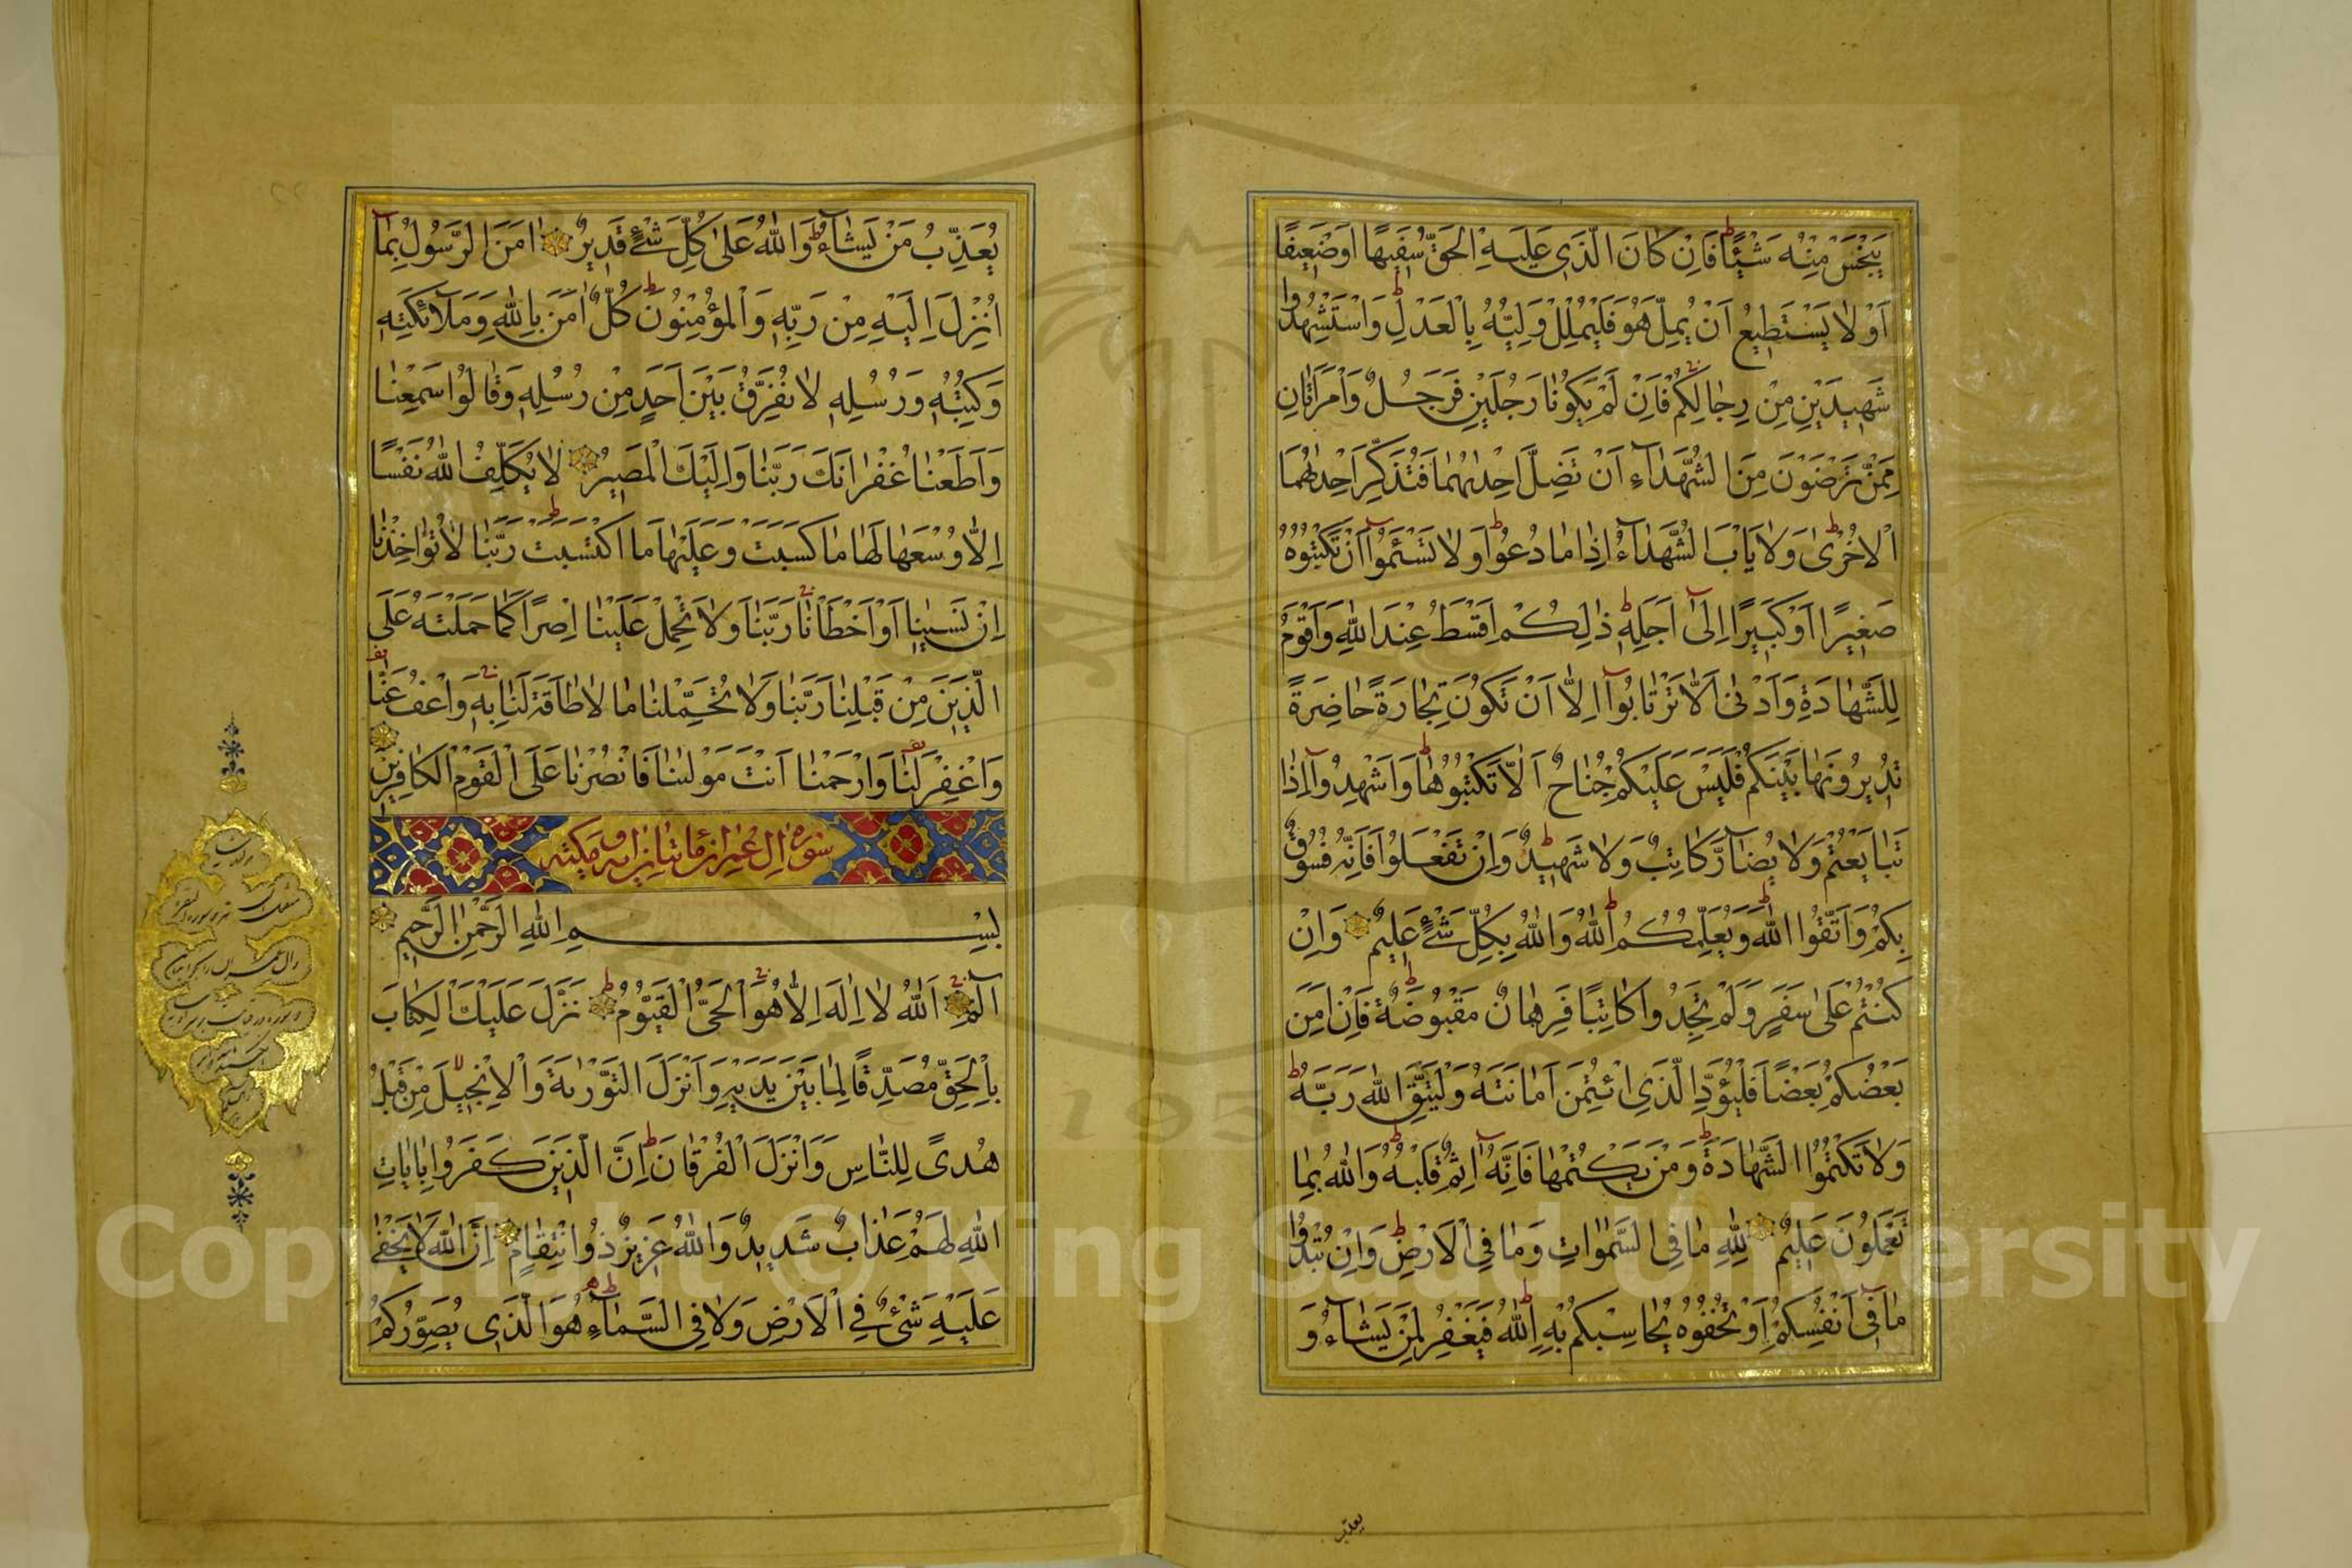 يَبْخَسْ مِنْهُ شَيْئًا فَاِنْ كَانَ الَّذِي عَلَيْهِ الْحَقُّ سَفِيهًا اَوْ ضَعِيفًا
اَوْ لَا يَسْتَطِيعُ اَنْ يُمِلَّ هُوَ فَلْيُمْلِلْ وَلِيُّهُ بِالْعَدْلِ وَاسْتَشْهِدُوا
شَهِيدَيْنِ مِنْ رِجَالِكُمْ فَاِنْ لَمْ يَكُونَا رَجُلَيْنِ فَرَجُلٌ وَامْرَاَتَانِ
مِمَّنْ تَرْضَوْنَ مِنَ الشُّهَدَاءِ اَنْ تَضِلَّ اِحْدٰىهُمَا فَتُذَكِّرَ اِحْدٰىهُمَا
الْاُخْرٰى وَلَا يَاْبَ الشُّهَدَاءُ اِذَا مَا دُعُوا وَلَا تَسْئَمُوا اَنْ تَكْتُبُوهُ
صَغِيرًا اَوْ كَبِيرًا اِلٰى اَجَلِهِ ذٰلِكُمْ اَقْسَطُ عِنْدَ اللّٰهِ وَاَقْوَمُ
لِلشَّهَادَةِ وَاَدْنٰى اَلَّا تَرْتَابُوا اِلَّا اَنْ تَكُونَ تِجَارَةً حَاضِرَةً
تُدِيرُونَهَا بَيْنَكُمْ فَلَيْسَ عَلَيْكُمْ جُنَاحٌ اَلَّا تَكْتُبُوهَا وَاَشْهِدُوا اِذَا
تَبَايَعْتُمْ وَلَا يُضَارَّ كَاتِبٌ وَلَا شَهِيدٌ وَاِنْ تَفْعَلُوا فَاِنَّهُ فُسُوقٌ
بِكُمْ وَاتَّقُوا اللّٰهَ وَيُعَلِّمُكُمُ اللّٰهُ وَاللّٰهُ بِكُلِّ شَيْءٍ عَلِيمٌ وَاِنْ
كُنْتُمْ عَلٰى سَفَرٍ وَلَمْ تَجِدُوا كَاتِبًا فَرِهَانٌ مَقْبُوضَةٌ فَاِنْ اَمِنَ
بَعْضُكُمْ بَعْضًا فَلْيُؤَدِّ الَّذِي ائْتُمِنَ اَمَانَتَهُ وَلْيَتَّقِ اللّٰهَ رَبَّهُ
وَلَا تَكْتُمُوا الشَّهَادَةَ وَمَنْ يَكْتُمْهَا فَاِنَّهُ اٰثِمٌ قَلْبُهُ وَاللّٰهُ بِمَا
تَعْمَلُونَ عَلِيمٌ لِلّٰهِ مَا فِي السَّمٰوَاتِ وَمَا فِي الْاَرْضِ وَاِنْ تُبْدُوا
مَا فِي اَنْفُسِكُمْ اَوْ تُخْفُوهُ يُحَاسِبْكُمْ بِهِ اللّٰهُ فَيَغْفِرُ لِمَنْ يَشَاءُ وَ
يعذب
يُعَذِّبُ مَنْ يَشَاءُ وَاللّٰهُ عَلٰى كُلِّ شَيْءٍ قَدِيرٌ اٰمَنَ الرَّسُولُ بِمَا
اُنْزِلَ اِلَيْهِ مِنْ رَبِّهِ وَالْمُؤْمِنُونَ كُلٌّ اٰمَنَ بِاللّٰهِ وَمَلَائِكَتِهِ
وَكُتُبِهِ وَرُسُلِهِ لَا نُفَرِّقُ بَيْنَ اَحَدٍ مِنْ رُسُلِهِ وَقَالُوا سَمِعْنَا
وَاَطَعْنَا غُفْرَانَكَ رَبَّنَا وَاِلَيْكَ الْمَصِيرُ لَا يُكَلِّفُ اللّٰهُ نَفْسًا
اِلَّا وُسْعَهَا لَهَا مَا كَسَبَتْ وَعَلَيْهَا مَا اكْتَسَبَتْ رَبَّنَا لَا تُؤَاخِذْنَا
اِنْ نَسِينَا اَوْ اَخْطَاْنَا رَبَّنَا وَلَا تَحْمِلْ عَلَيْنَا اِصْرًا كَمَا حَمَلْتَهُ عَلَى
الَّذِينَ مِنْ قَبْلِنَا رَبَّنَا وَلَا تُحَمِّلْنَا مَا لَا طَاقَةَ لَنَا بِهِ وَاعْفُ عَنَّا
وَاغْفِرْ لَنَا وَارْحَمْنَا اَنْتَ مَوْلٰينَا فَانْصُرْنَا عَلَى الْقَوْمِ الْكَافِرِينَ
سورة آل عمران مائتا آية مكية
بِسْمِ اللّٰهِ الرَّحْمٰنِ الرَّحِيمِ
الٓمٓ اَللّٰهُ لَا اِلٰهَ اِلَّا هُوَ الْحَيُّ الْقَيُّومُ نَزَّلَ عَلَيْكَ الْكِتَابَ
بِالْحَقِّ مُصَدِّقًا لِمَا بَيْنَ يَدَيْهِ وَاَنْزَلَ التَّوْرٰيةَ وَالْاِنْجِيلَ مِنْ قَبْلُ
هُدًى لِلنَّاسِ وَاَنْزَلَ الْفُرْقَانَ اِنَّ الَّذِينَ كَفَرُوا بِاٰيَاتِ
اللّٰهِ لَهُمْ عَذَابٌ شَدِيدٌ وَاللّٰهُ عَزِيزٌ ذُو انْتِقَامٍ اِنَّ اللّٰهَ لَا يَخْفٰى
عَلَيْهِ شَيْءٌ فِي الْاَرْضِ وَلَا فِي السَّمَاءِ هُوَ الَّذِي يُصَوِّرُكُمْ
1957
Copyright © King Saud University